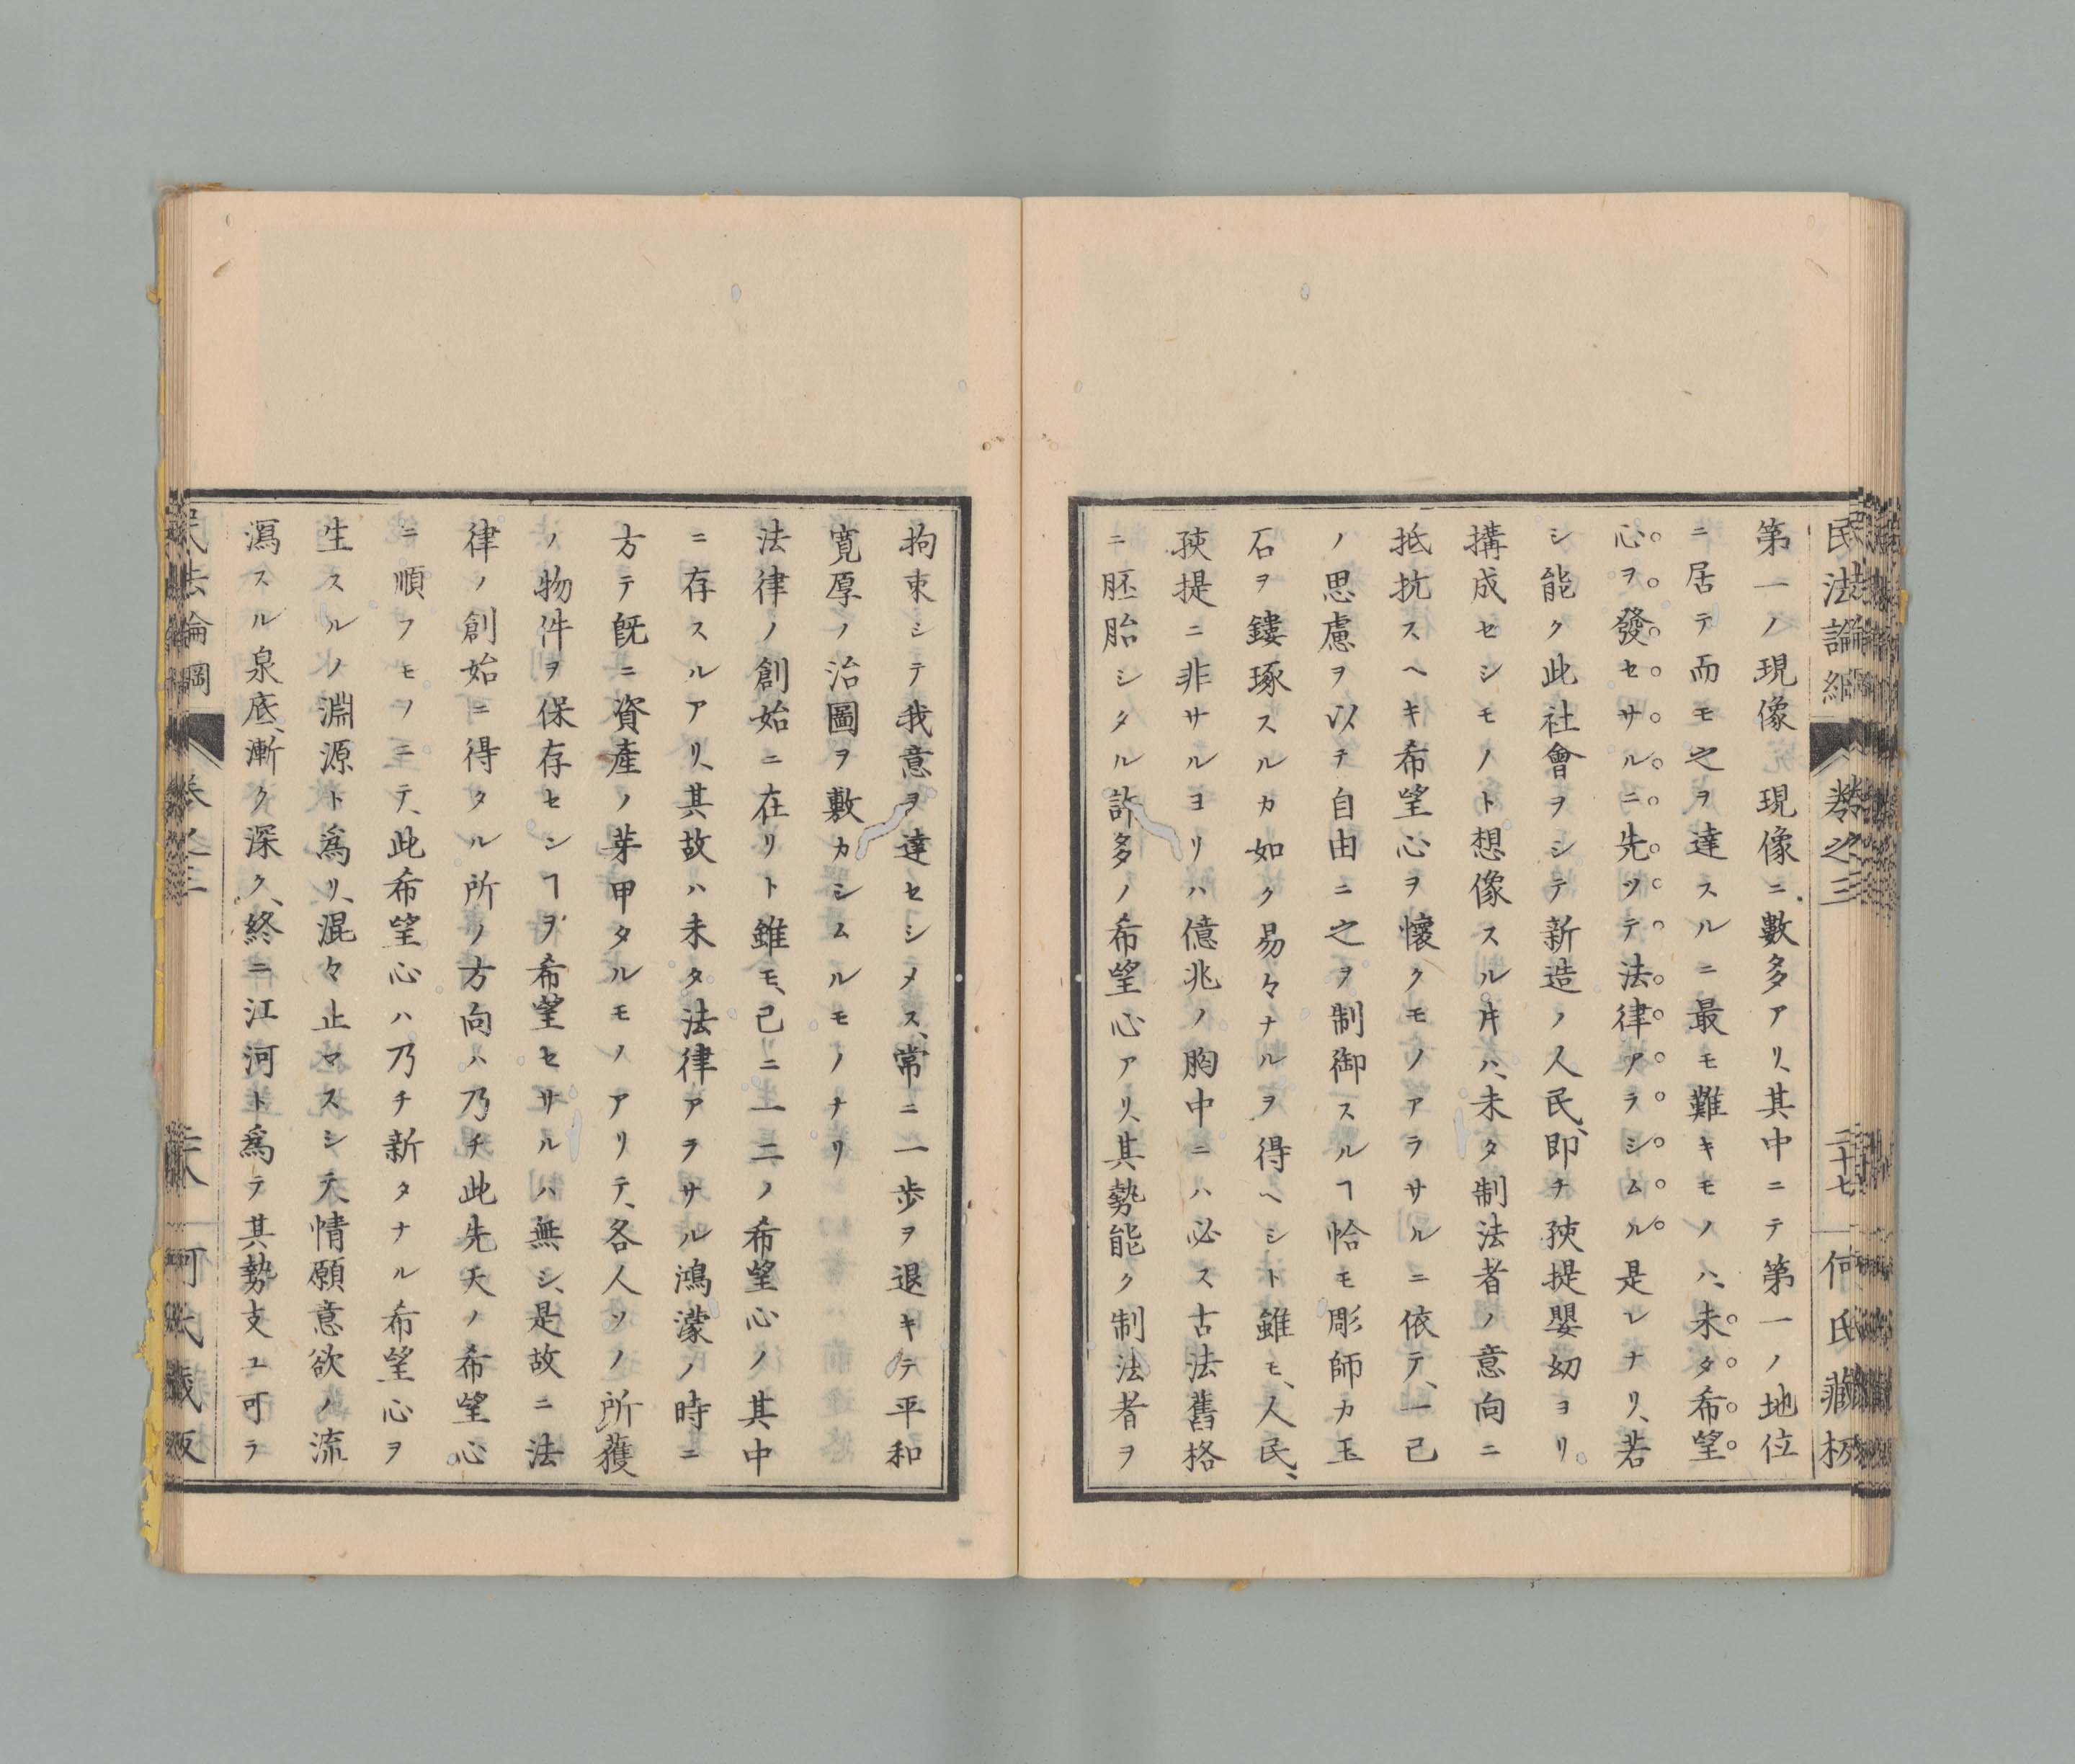 民法論綱 卷之三 二十七 何氏藏板
第一ノ現像現像ニ數多アリ、其中ニテ第一ノ地位
ニ居テ而モ之ヲ達スルニ最モ難キモノハ、未タ希望
心ヲ發セサルニ先ツテ法律アラシムル是レナリ、若
シ能ク此社會ヲシテ新造ノ人民、即チ孩提嬰幼ヨリ
搆成セシモノト想像スル寸ハ、未タ制法者ノ意向ニ
抵抗スヘキ希望心ヲ懷クモノアラサルニ依テ、一己
ノ思慮ヲ以チ自由ニ之ヲ制御スルヿ恰モ彫師カ玉
石ヲ鏤琢スルカ如ク易々ナルヲ得ヘシト雖モ、人民、
孩提ニ非サルヨリハ億兆ノ胸中ニハ必ス古法舊格
ニ胚胎シタル許多ノ希望心アリ、其勢能ク制法者ヲ
拘束シテ我意ヲ達セシメス、常ニ一歩ヲ退キテ平和
寛厚ノ治圖ヲ敷カシムルモノナリ
法律ノ創始ニ在リト雖モ、已ニ一二ノ希望心ノ其中
ニ存スルアリ、其故ハ未タ法律アラサル鴻濛ノ時ニ
方テ既ニ資產ノ芽甲タルモノアリテ、各人ソノ所獲
ノ物件ヲ保存セシヿヲ希望セサルハ無シ、是故ニ法
律ノ創始ニ得タル所ノ方向ハ乃チ此先天ノ希望心
ニ順フモノニテ、此希望心ハ乃チ新タナル希望心ヲ
生スルノ淵源ト爲リ、混々止マスシテ、情願意欲ノ流
瀉スル泉底、漸ク深ク、終ニ江河ト爲テ其勢支ユ可ラ
民法論綱 卷之三 何氏藏板